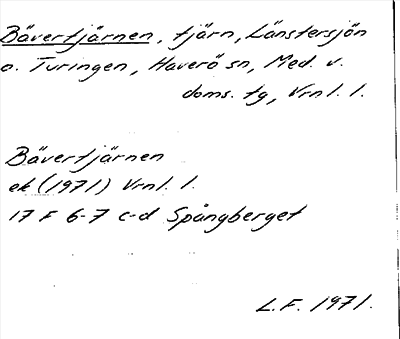 Bävertjärnen, tjärn, Länstersjön
o. Turingen, Haverö sn, Med. v.
doms. tg, Vrnl. l.
Bävertjärnen
ek (1971) Vrnl. l.
17 F 6-7 c-d Spångberget
L.F. 1971.